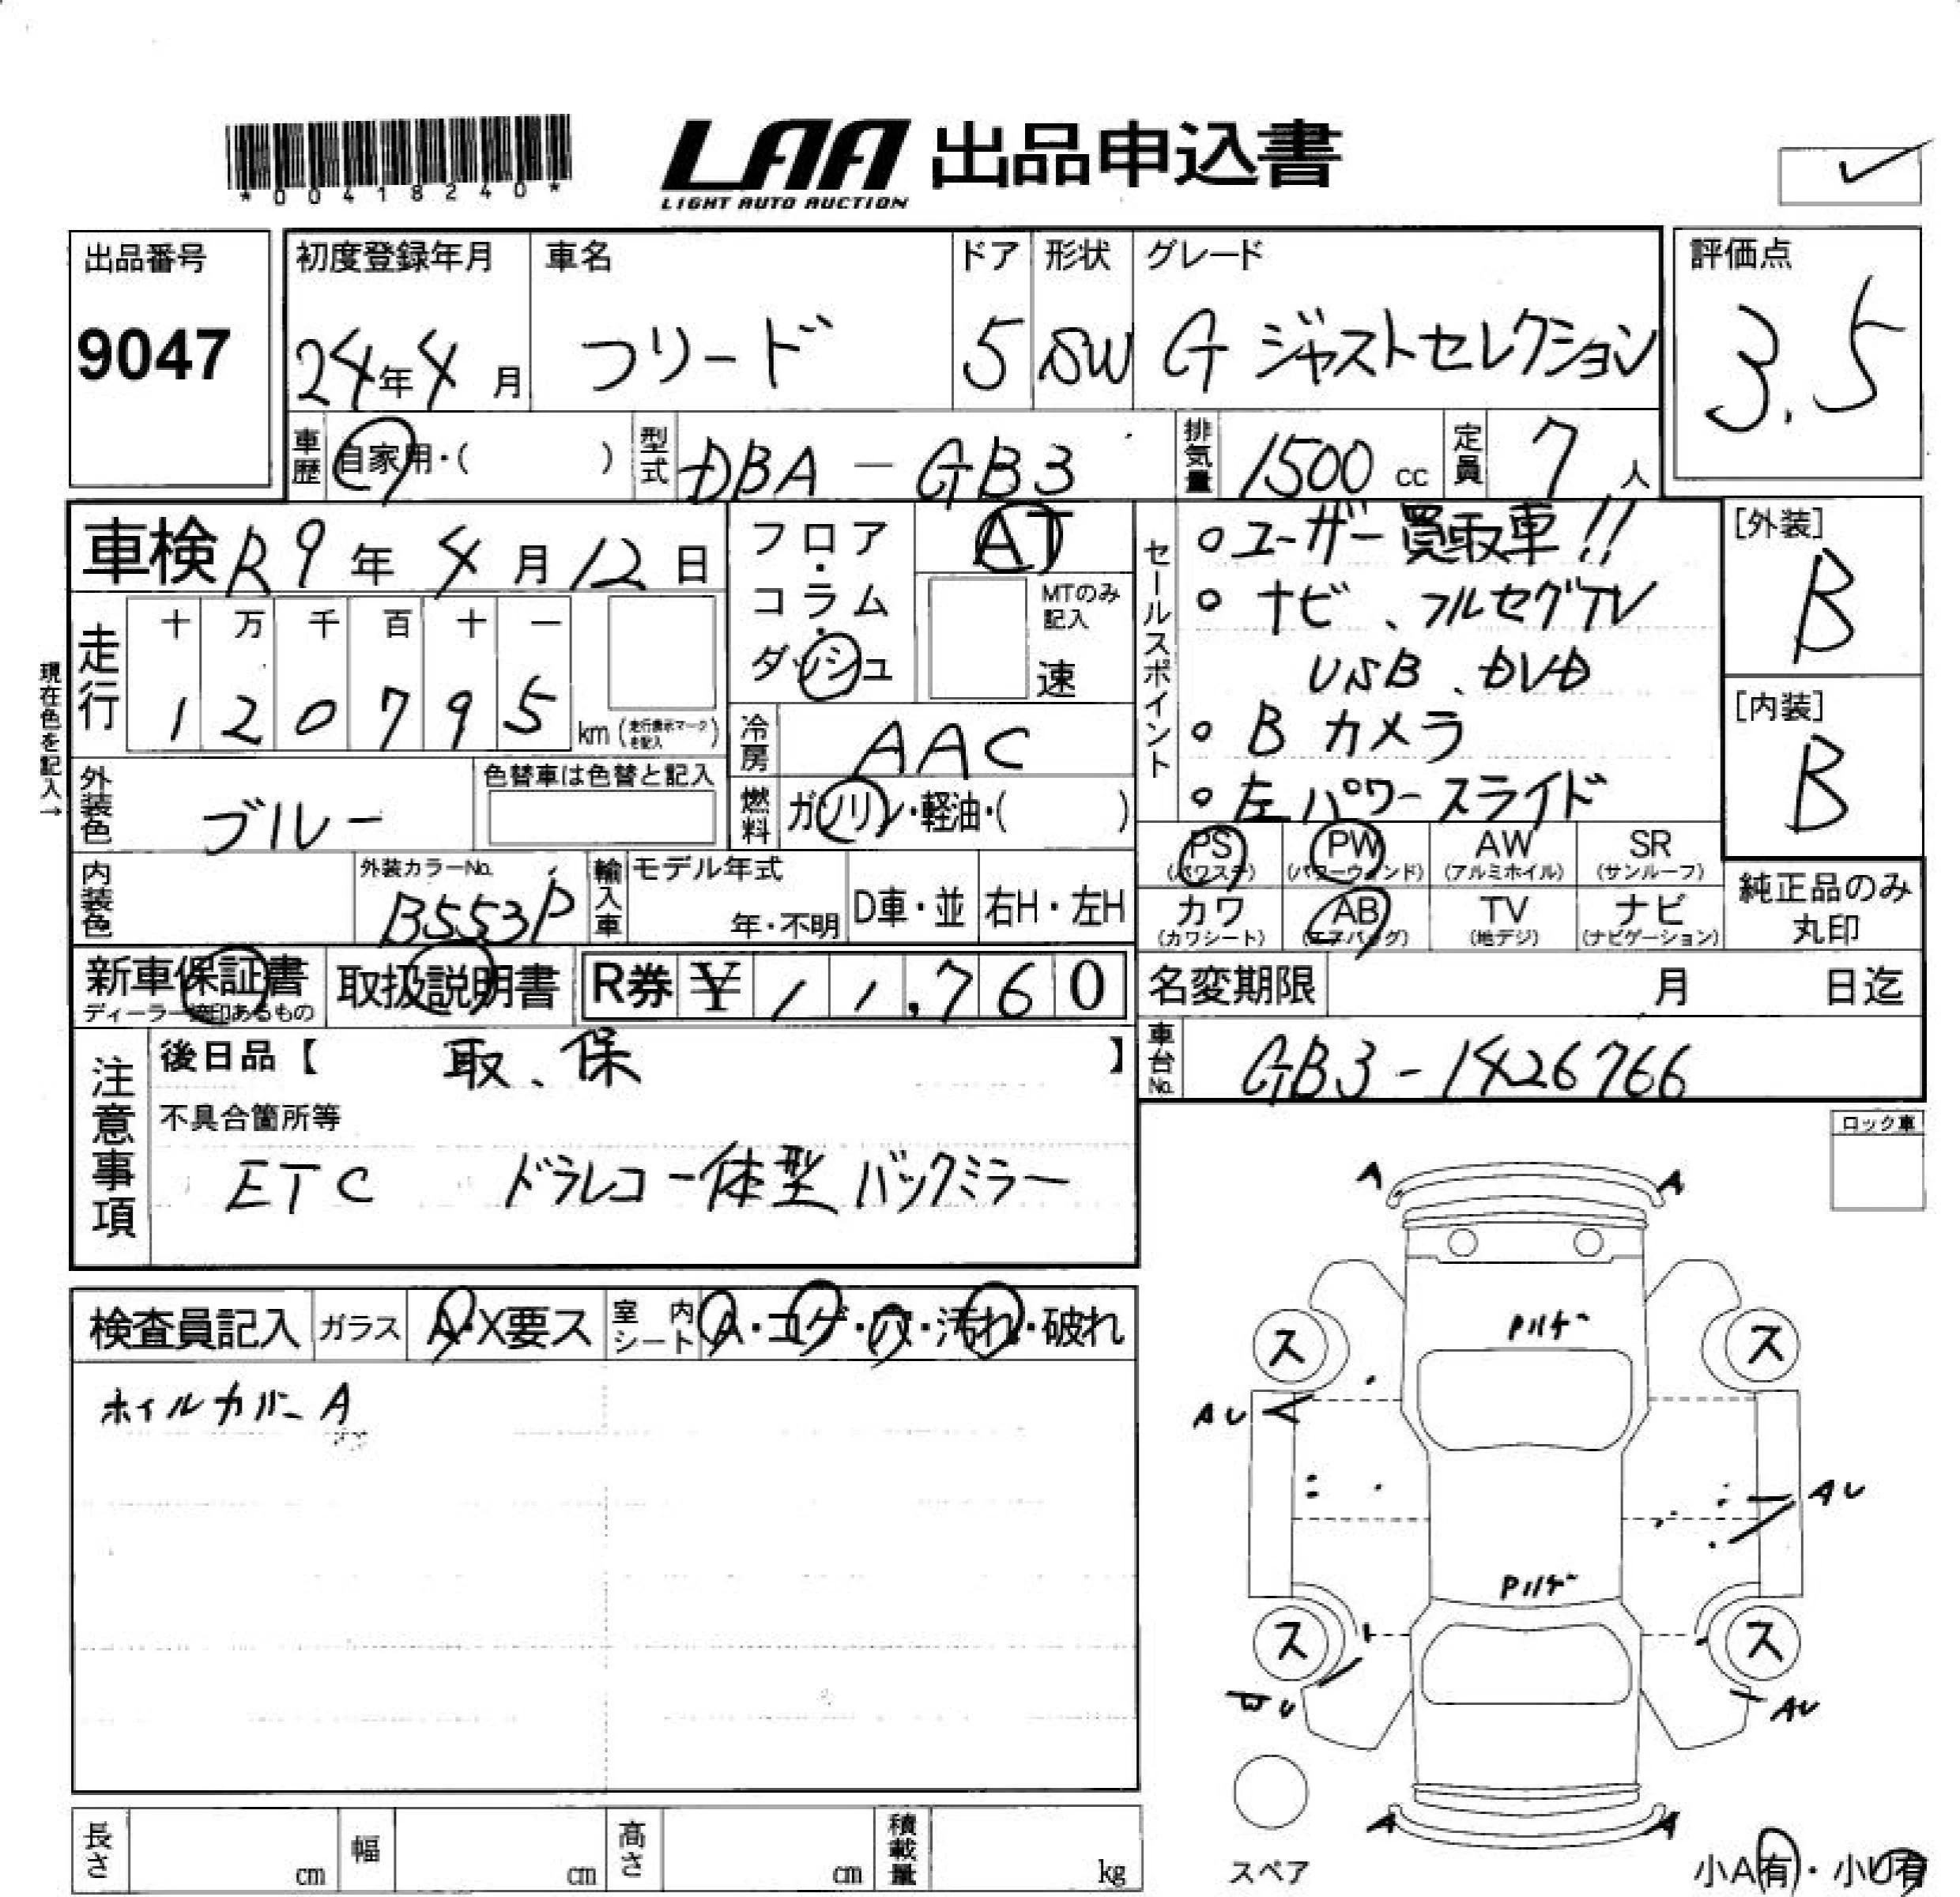 *00418240*
LAA 出品申込書
LIGHT AUTO AUCTION
出品番号
9047
初度登録年月
24年4月
車名
フリード
ドア
5
形状
SW
グレード
G ジャストセレクション
評価点
3.5
車歴
自家用・( )
型式
DBA-GB3
排気量
1500 cc
定員
7 人
車検 R9年 4月 12日
現在色を記入→
走行
十 万 千 百 十 一
1 2 0 7 9 5 km (走行表示マークを記入)
フロア・コラム・ダッシュ
AT
MTのみ記入
速
冷房
AAC
燃料
ガソリン・軽油・( )
外装色
ブルー
色替車は色替と記入
内装色
外装カラーNo.
B553P
輸入車
モデル年式
年・不明
D車・並
右H・左H
セールスポイント
○ユーザー買取車!!
○ ナビ、フルセグTV
USB、DVD
○ Bカメラ
○ 左パワースライド
[外装]
B
[内装]
B
PS (パワステ)
PW (パワーウィンド)
AW (アルミホイル)
SR (サンルーフ)
カワ (カワシート)
AB (エアバッグ)
TV (地デジ)
ナビ (ナビゲーション)
純正品のみ
丸印
新車保証書
ディーラー捺印あるもの
取扱説明書
R券 ¥ 11,760
名変期限 月 日迄
車台No.
GB3-1426766
注意事項
後日品【 取、保 】
不具合箇所等
ETC ドラレコ一体型バックミラー
ロック車
検査員記入
ガラス
A・X要ス
室内シート
A・コゲ・穴・汚れ・破れ
ホイルカバーA
A A
Pハゲ
ス ス
AU
AU
Pハゲ
ス ス
AU
A A
スペア
小A有・小U有
長さ cm
幅 cm
高さ cm
積載量 kg